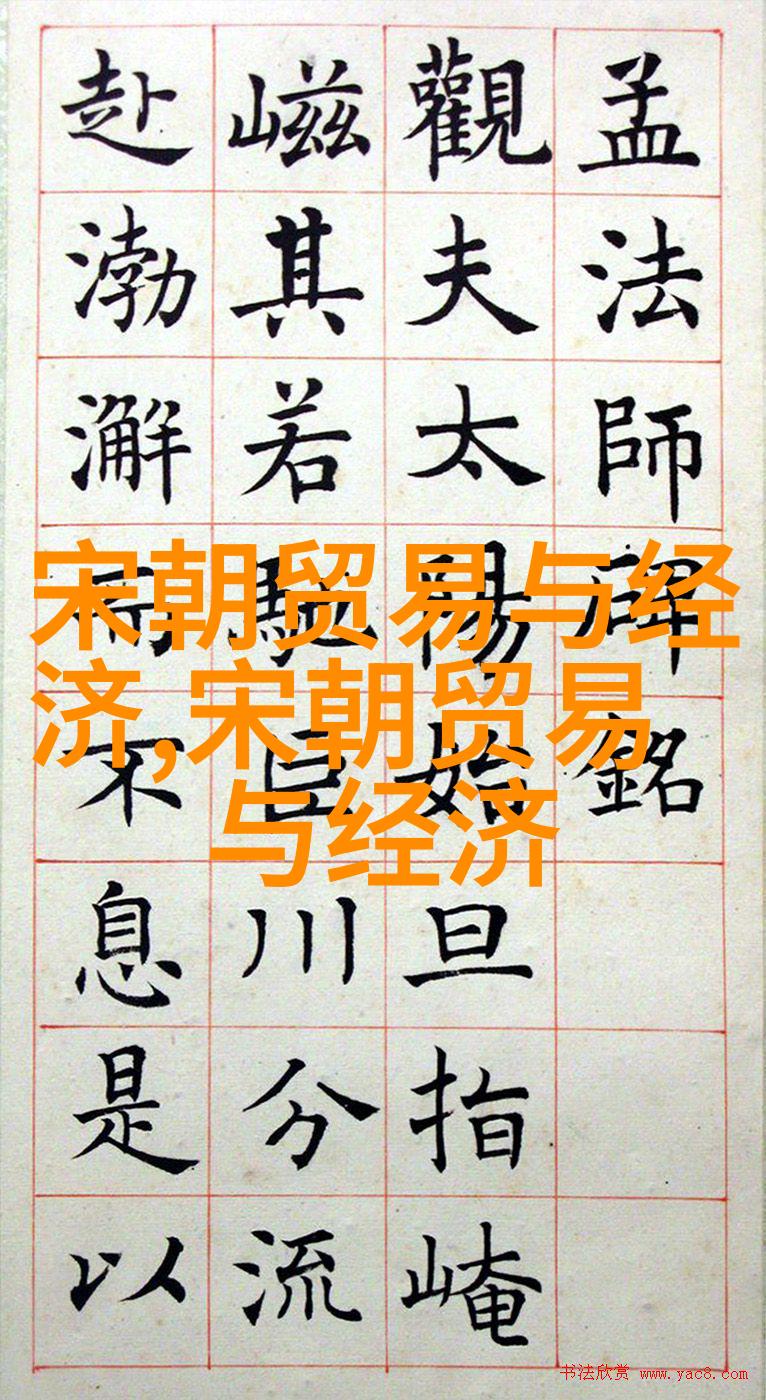 孟法師碑銘
觀夫太陽始旦指崦
嵫其若馳巨川分流
赴渤澥而不息是以
宋朝贸易与经
济,宋朝贸易
与经济
书法欣赏 www.yac8.com